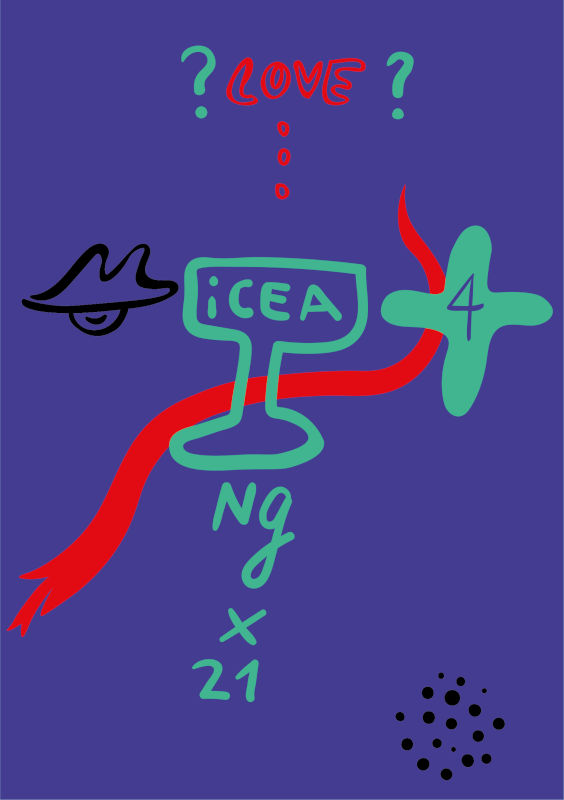 ? LOVE ?
iCEA
4
Ng
x
21